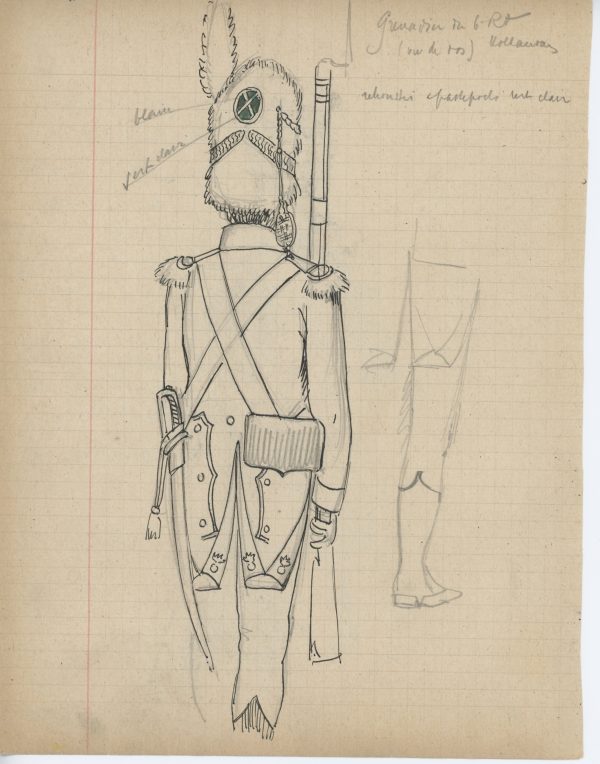 Grenadier du 6e Rt
(vu de dos) Hollandais
blanc
vert clair
vert clair